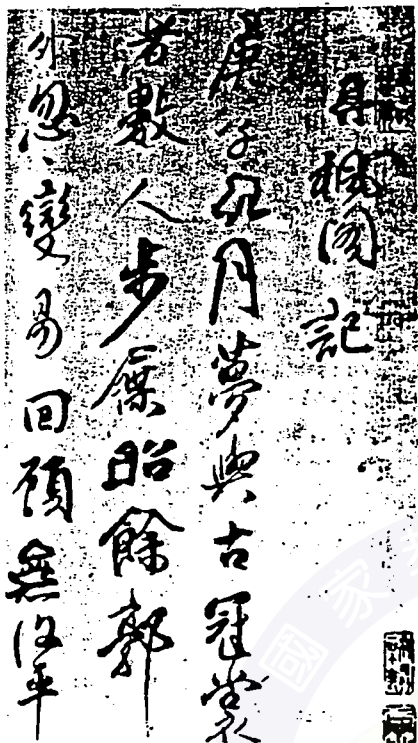 丹楓閣記
庚子九月夢與古冠裳
者數人步屧昭餘郭
外忽〻變易回顧無復平
國家